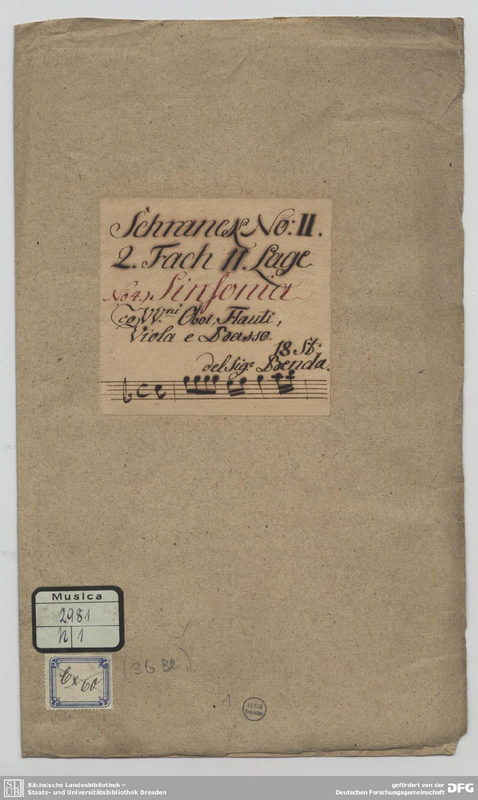 Schranck No: II.
2. Fach 17. Lage
No 4.). Sinfonia
co VV.ni Oboi, Flauti,
Viola e Basso.
18. St:
del Sigr. Benda.
Musica
2981
N 1
Cx 60
(36 Bl.)
1
SLUB
Dresden
SLUB
Sächsische Landesbibliothek –
Staats- und Universitätsbibliothek Dresden
gefördert von der
Deutschen Forschungsgemeinschaft
DFG